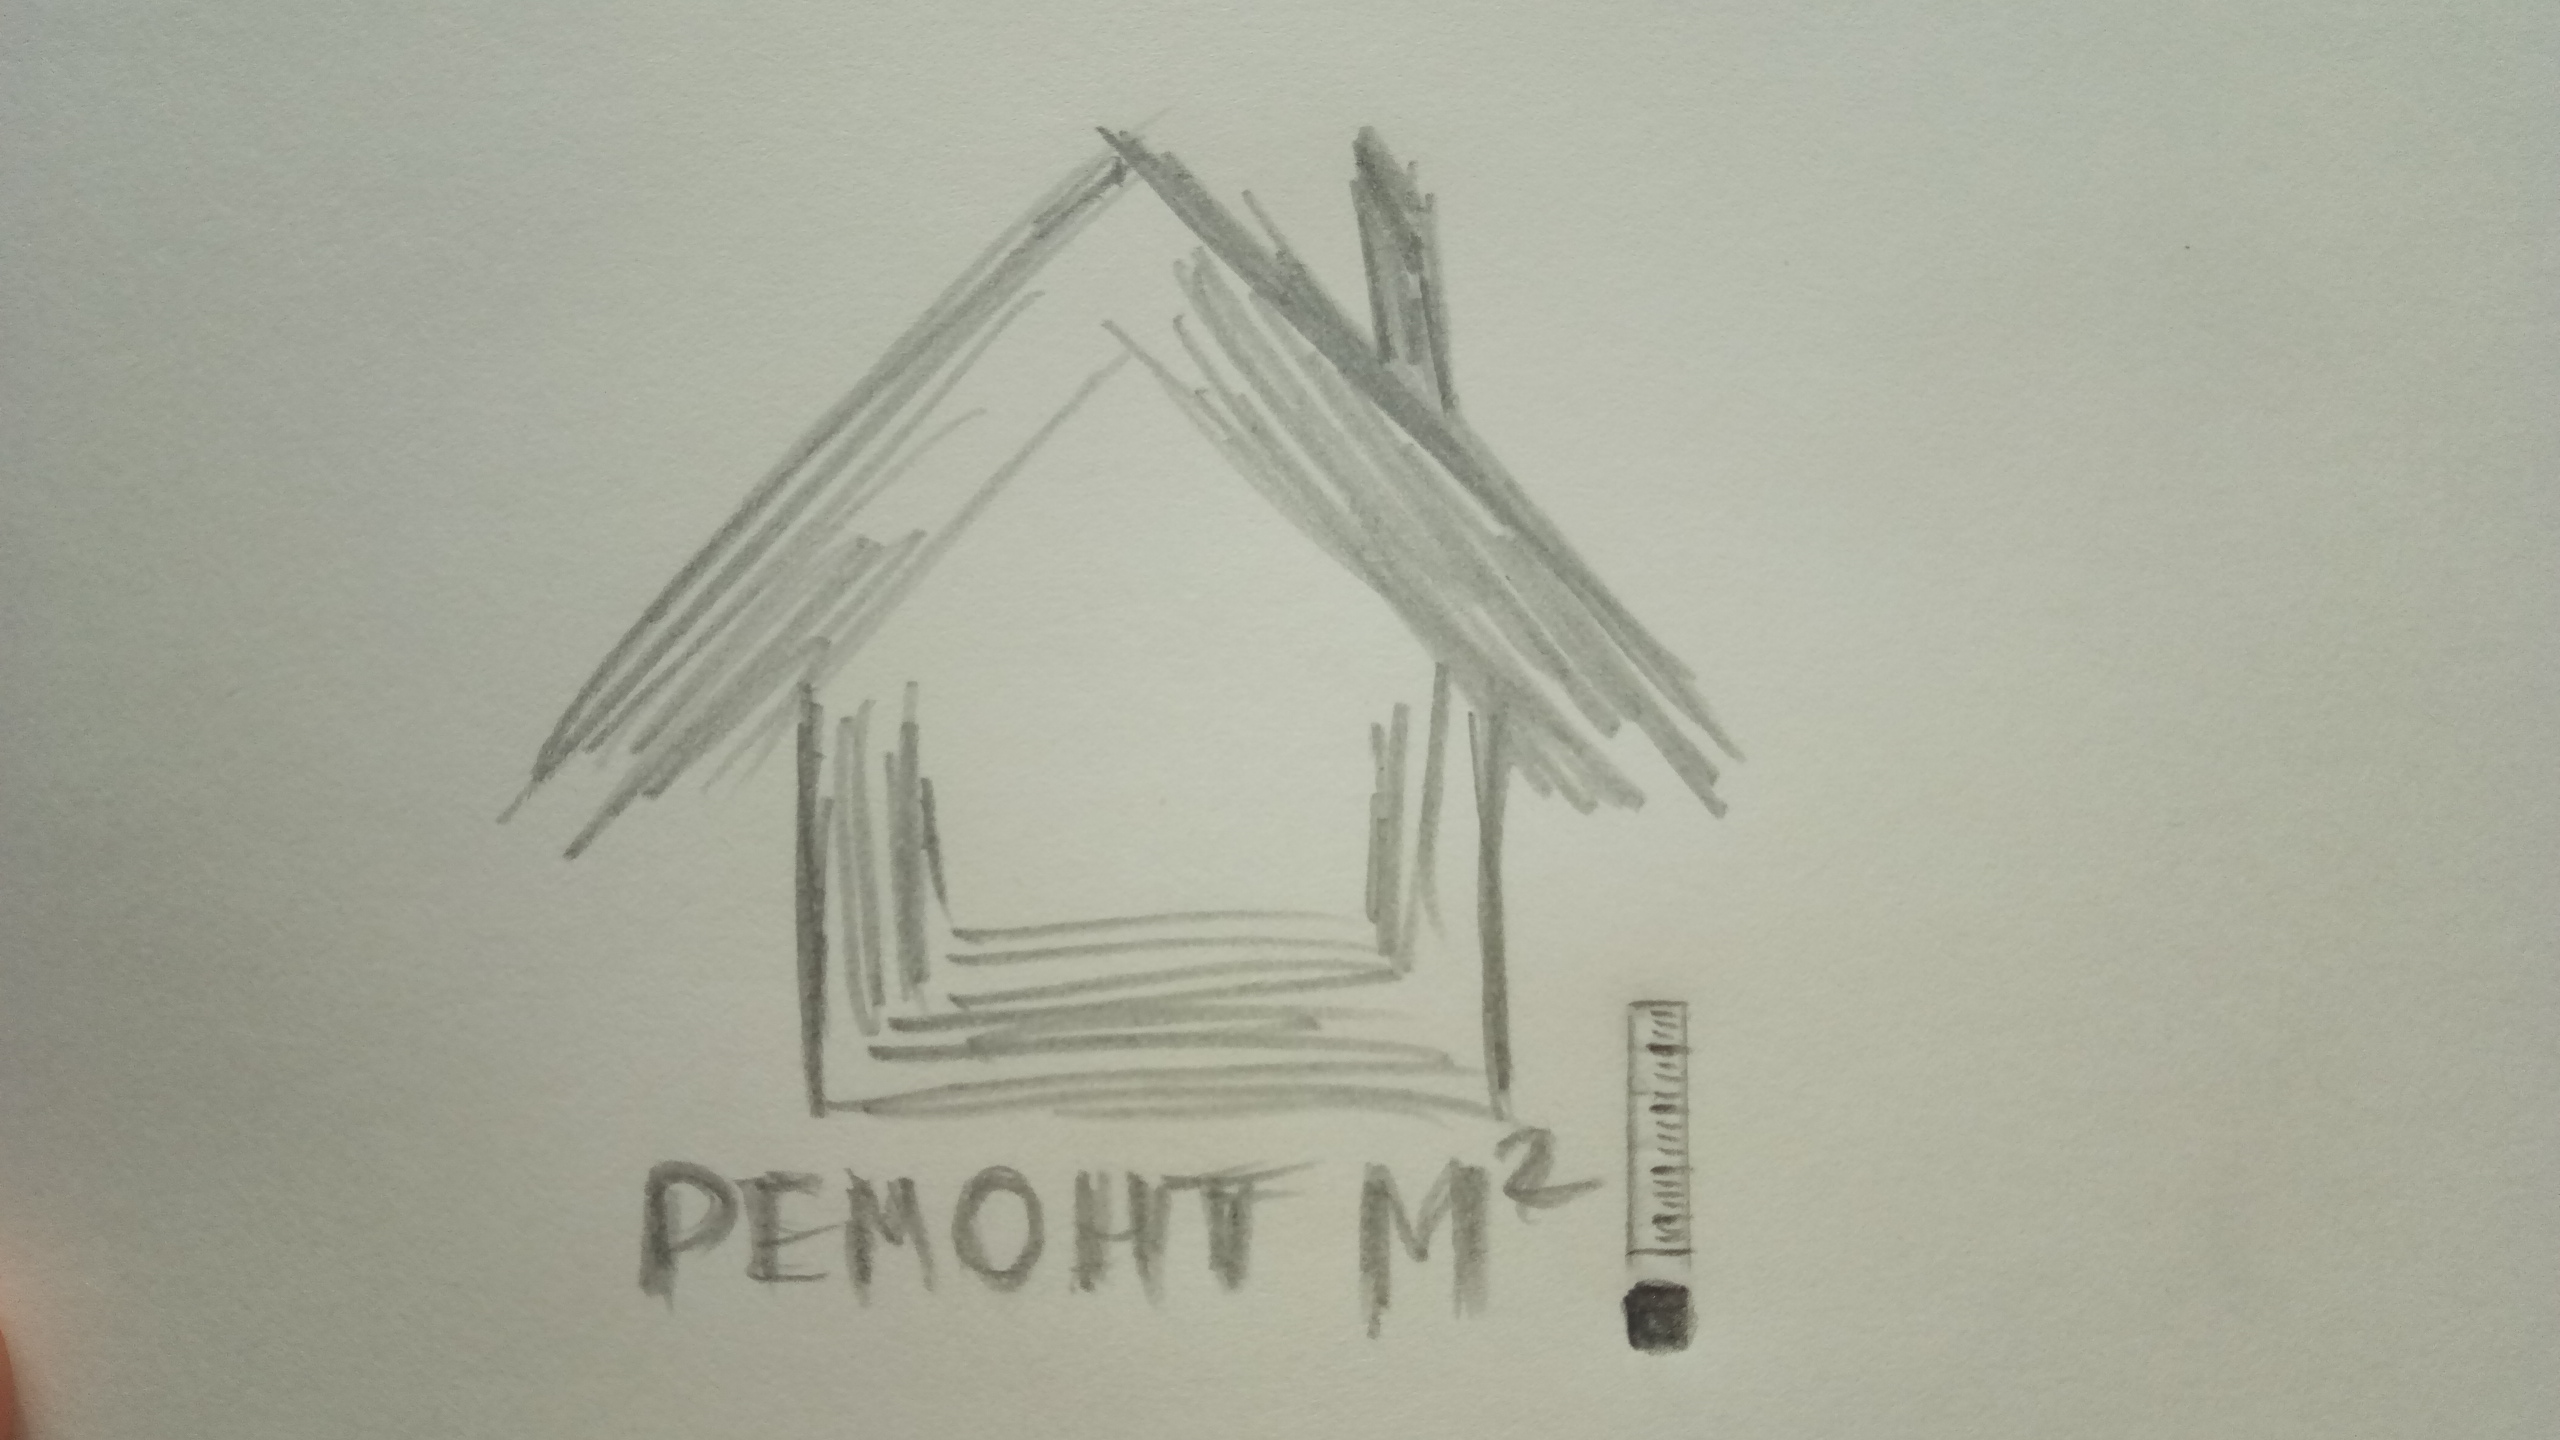 РЕМОНТ М²!